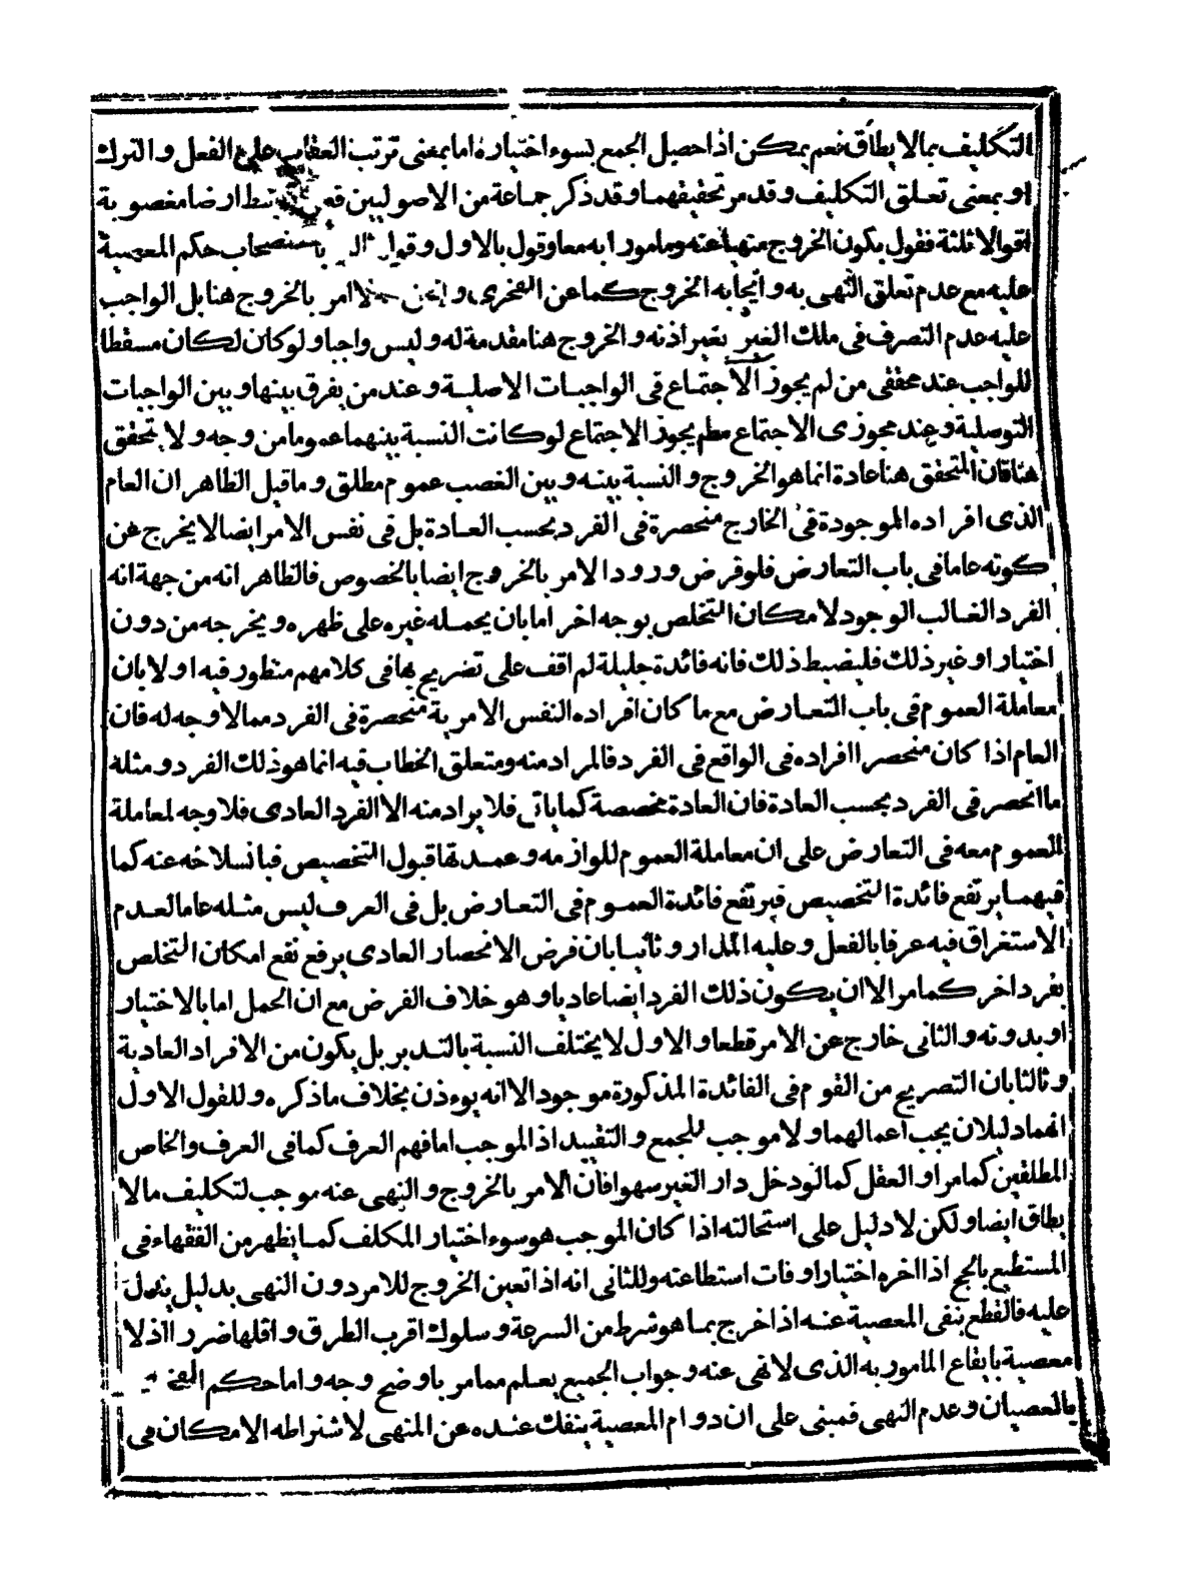 التكليف بما لا يطاق نعم يمكن اذا حصل الجمع بسوء اختياره اما بمعنى ترتب العقاب على الفعل والترك
او بمعنى تعلق التكليف وقد مر تحقيقهما وقد ذكر جماعة من الاصوليين فى توسط ارضا مغصوبة
اقوالا ثلثة فقول بكون الخروج منهيا عنه ومامورا به معا وقول بالاول وقول باستصحاب حكم المعصية
عليه مع عدم تعلق النهى به وايجابه الخروج كما عن الفخرى و لا امر بالخروج هنا بل الواجب
عليه عدم التصرف فى ملك الغير بغير اذنه والخروج هنا مقدمة له وليس واجبا ولو كان لكان مسقطا
للواجب عند محققى من لم يجوز الاجتماع فى الواجبات الاصلية وعند من يفرق بينها وبين الواجبات
التوصلية وعند مجوزى الاجتماع مطم يجوز الاجتماع لو كانت النسبة بينهما عموما من وجه ولا يتحقق
هنا فان المتحقق هنا عادة انما هو الخروج والنسبة بينه وبين الغصب عموم مطلق وما قيل الظاهر ان العام
الذى افراده الموجودة فى الخارج منحصرة فى الفرد بحسب العادة بل فى نفس الامر ايضا لا يخرج عن
كونه عاما فى باب التعارض فلو فرض ورود الامر بالخروج ايضا بالخصوص فالظاهر انه من جهة انه
الفرد الغالب الوجود لامكان التخلص بوجه اخر اما بان يحمله غيره على ظهره ويخرجه من دون
اختيار او غير ذلك فليضبط ذلك فانه فائدة جليلة لم اقف على تضريح بها فى كلامهم منظور فيه اولا بان
معاملة العموم فى باب التعارض مع ما كان افراده النفس الامرية منحصرة فى الفرد مما لا وجه له فان
العام اذا كان منحصرا افراده فى الواقع فى الفرد فالمراد منه ومتعلق الخطاب فيه انما هو ذلك الفرد ومثله
ما انحصر فى الفرد بحسب العادة فان العادة مخصصة كما ياتى فلا يراد منه الا الفرد العادى فلا وجه لمعاملة
العموم معه فى التعارض على ان معاملة العموم للوازمه وعمدتها قبول التخصيص فبانسلاخه عنه كما
فيهما يرتفع فائدة التخصيص فيرتفع فائدة العموم فى التعارض بل فى العرف ليس مثله عاما لعدم
الاستغراق فيه عرفا بالفعل وعليه المدار وثانيا بان فرض الانحصار العادى يرفع نفع امكان التخلص
بفرد اخر كما مر الا ان يكون ذلك الفرد ايضا عاديا وهو خلاف الفرض مع ان الحمل اما بالاختيار
او بدونه والثانى خارج عن الامر قطعا والاول لا يختلف النسبة بالتدبر بل يكون من الافراد العادية
وثالثا بان التصريح من القوم فى الفائدة المذكورة موجود الا انه يوءذن بخلاف ما ذكره وللقول الاول
انهما دليلان يجب اعمالهما ولا موجب للجمع والتقييد اذ الموجب اما فهم العرف كما فى العرف والخاص
المطلقين كما مر او العقل كما لو دخل دار الغير سهوا فان الامر بالخروج والنهى عنه موجب لتكليف ما لا
يطاق ايضا ولكن لا دليل على استحالته اذا كان الموجب هو سوء اختيار المكلف كما يظهر من الفقهاء فى
المستطيع بالحج اذا اخره اختيارا وفات استطاعته وللثانى انه اذا تعين الخروج للامر دون النهى بدليل يدل
عليه فالقطع بنفى المعصية عنه اذا خرج بما هو شرط من السرعة وسلوك اقرب الطرق واقلها ضررا اذ لا
معصية بايقاع المامور به الذى لا نهى عنه وجواب الجميع يعلم مما مر باوضح وجه واما حكم الفخرى
بالعصيان وعدم النهى فمبنى على ان دوام المعصية ينفك عنده عن المنهى لاشتراطه الامكان فى